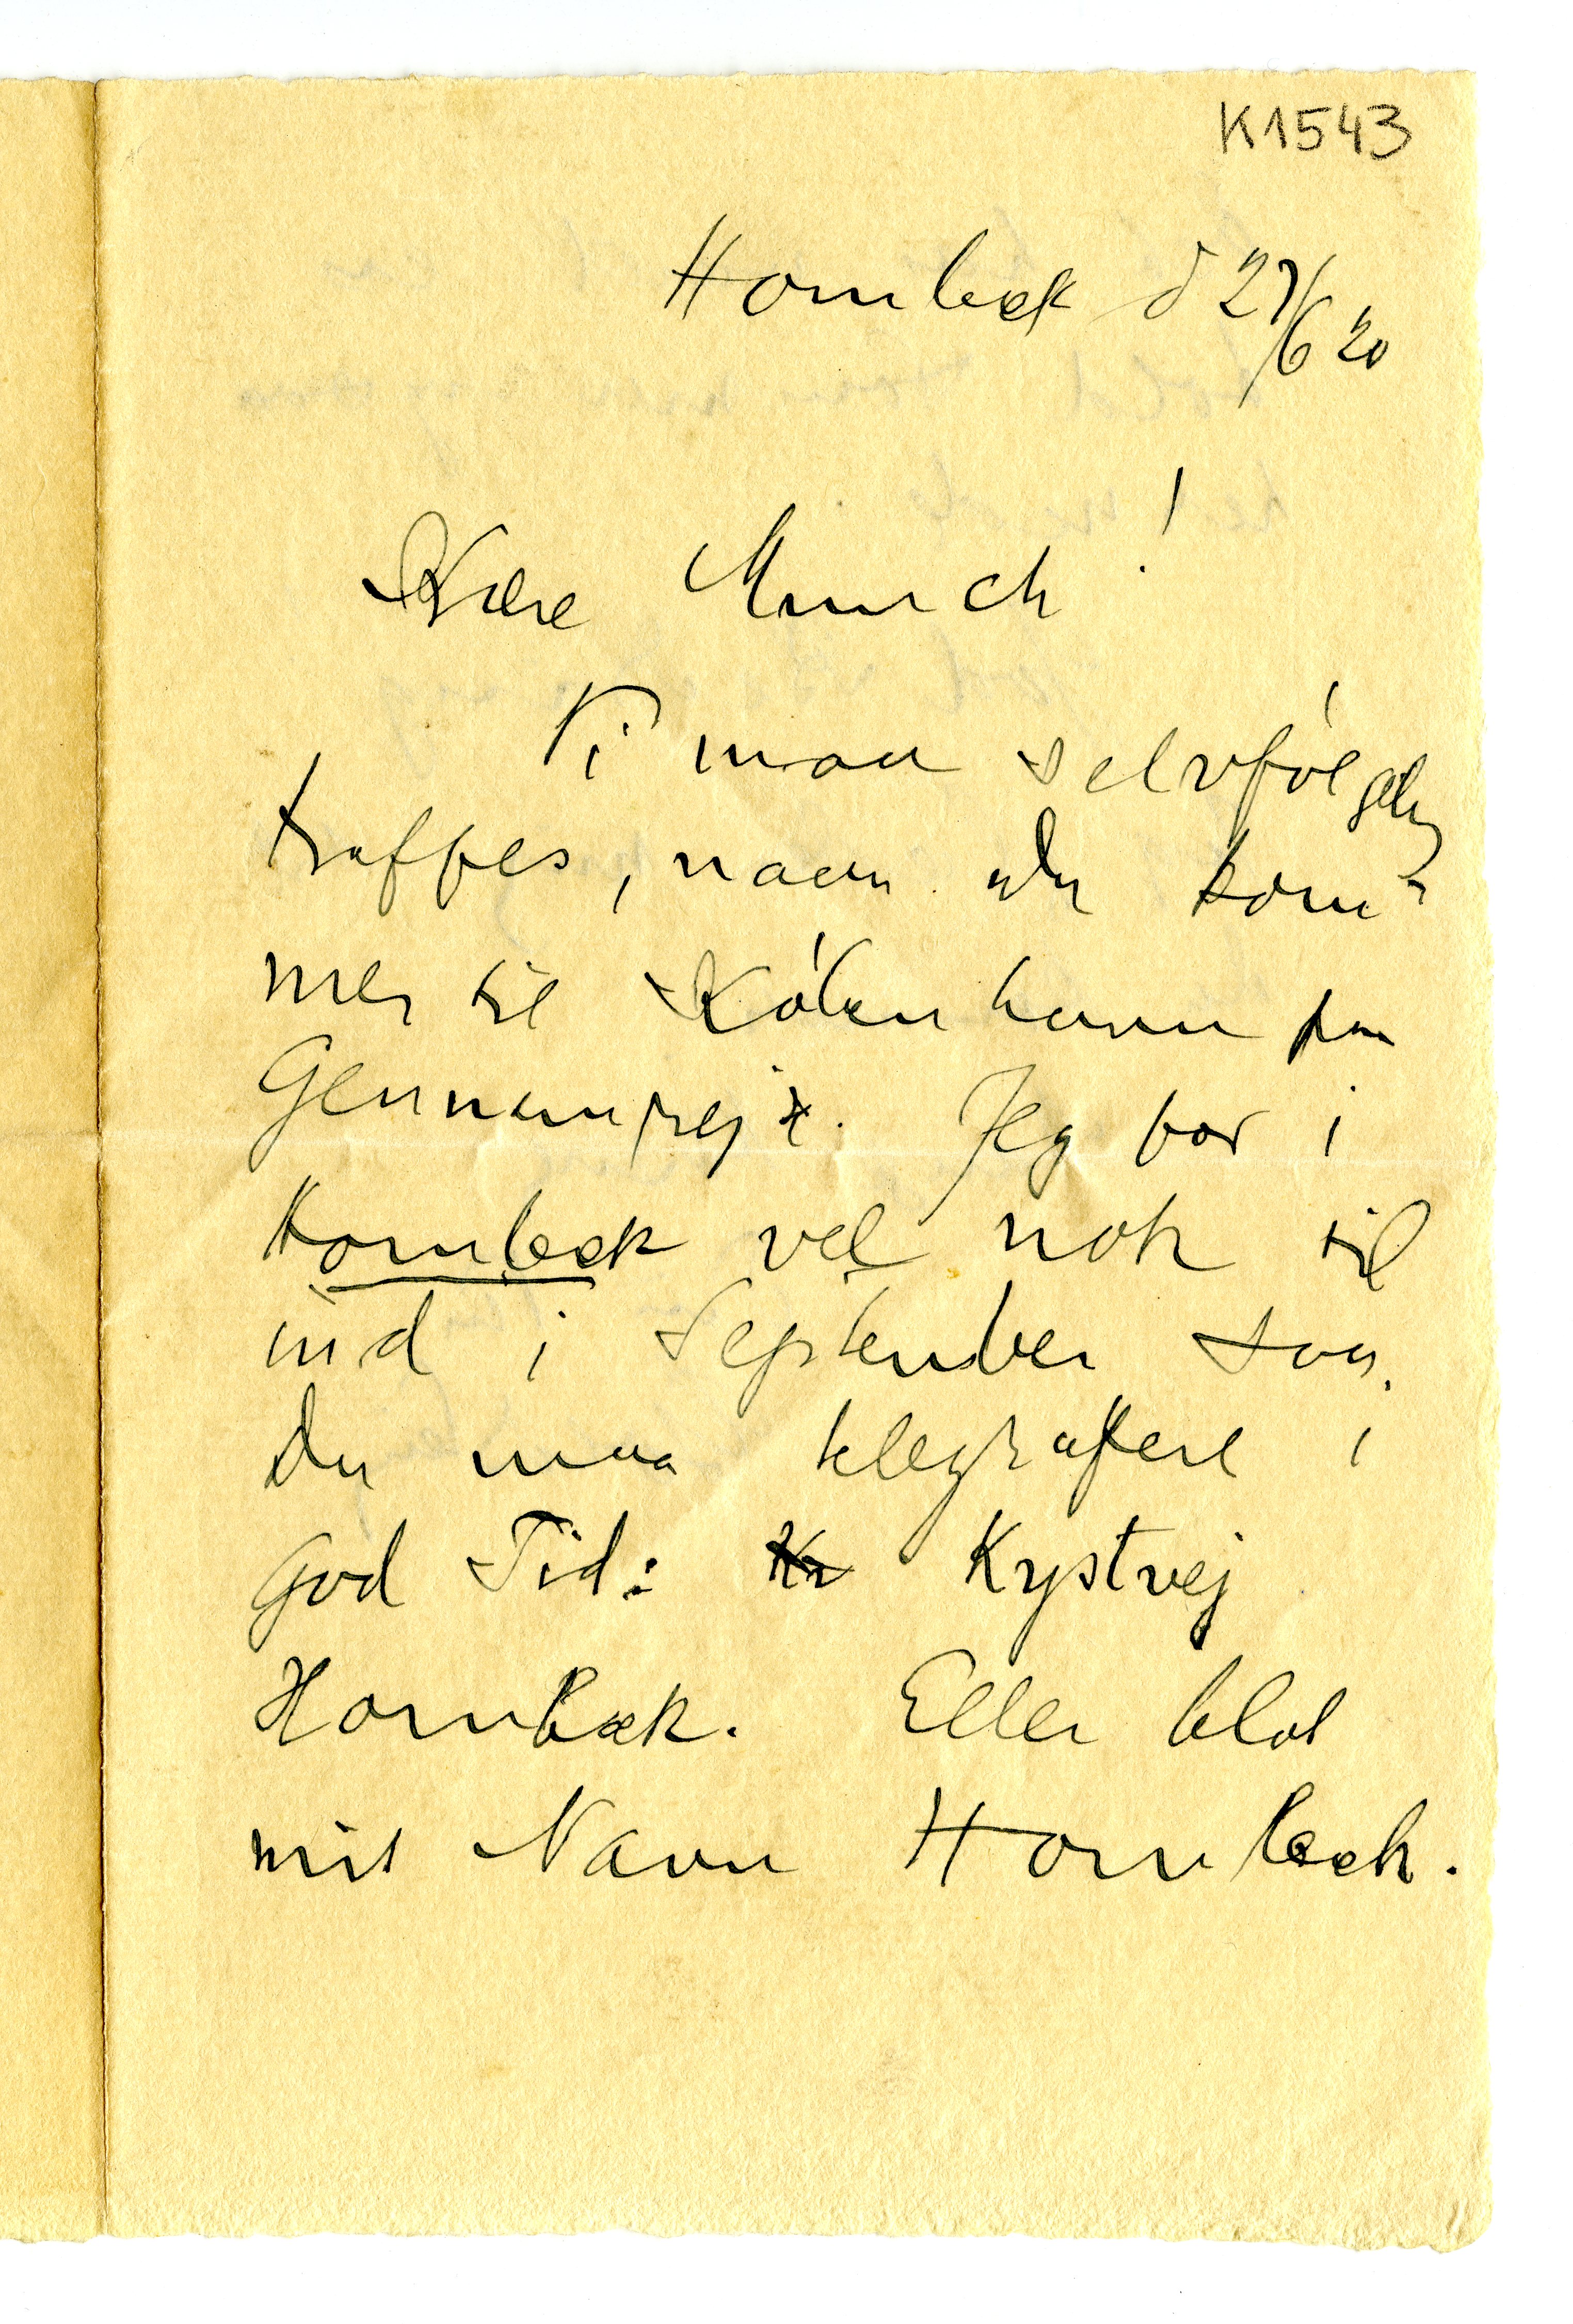 K1543
Hornbæk d 27/6 20
Kære Munch!
Vi maa selvfølgelig
træffes, naar du kom-
mer til København paa
Gennemrejse. Jeg bor i
Hornbæk vel nok til
ind i September saa
Du maa telegrafere i
god Tid: Kr Kystvej
Hornbæk. Eller blot
mit Navn Hornbæk.